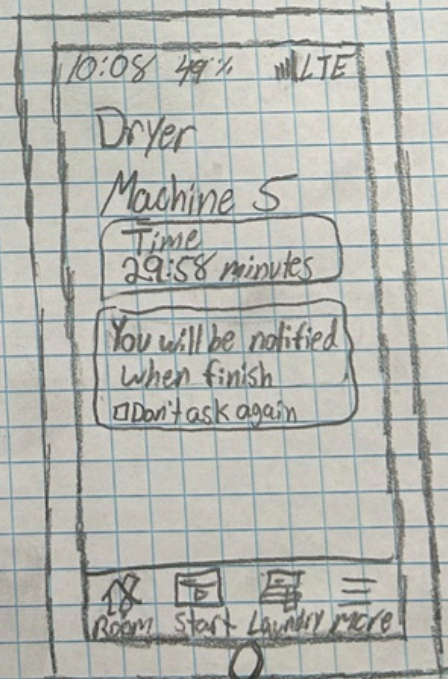 10:08 49% LTE
Dryer
Machine 5
Time
29:58 minutes
You will be notified
when finish
Don't ask again
Room Start Laundry More